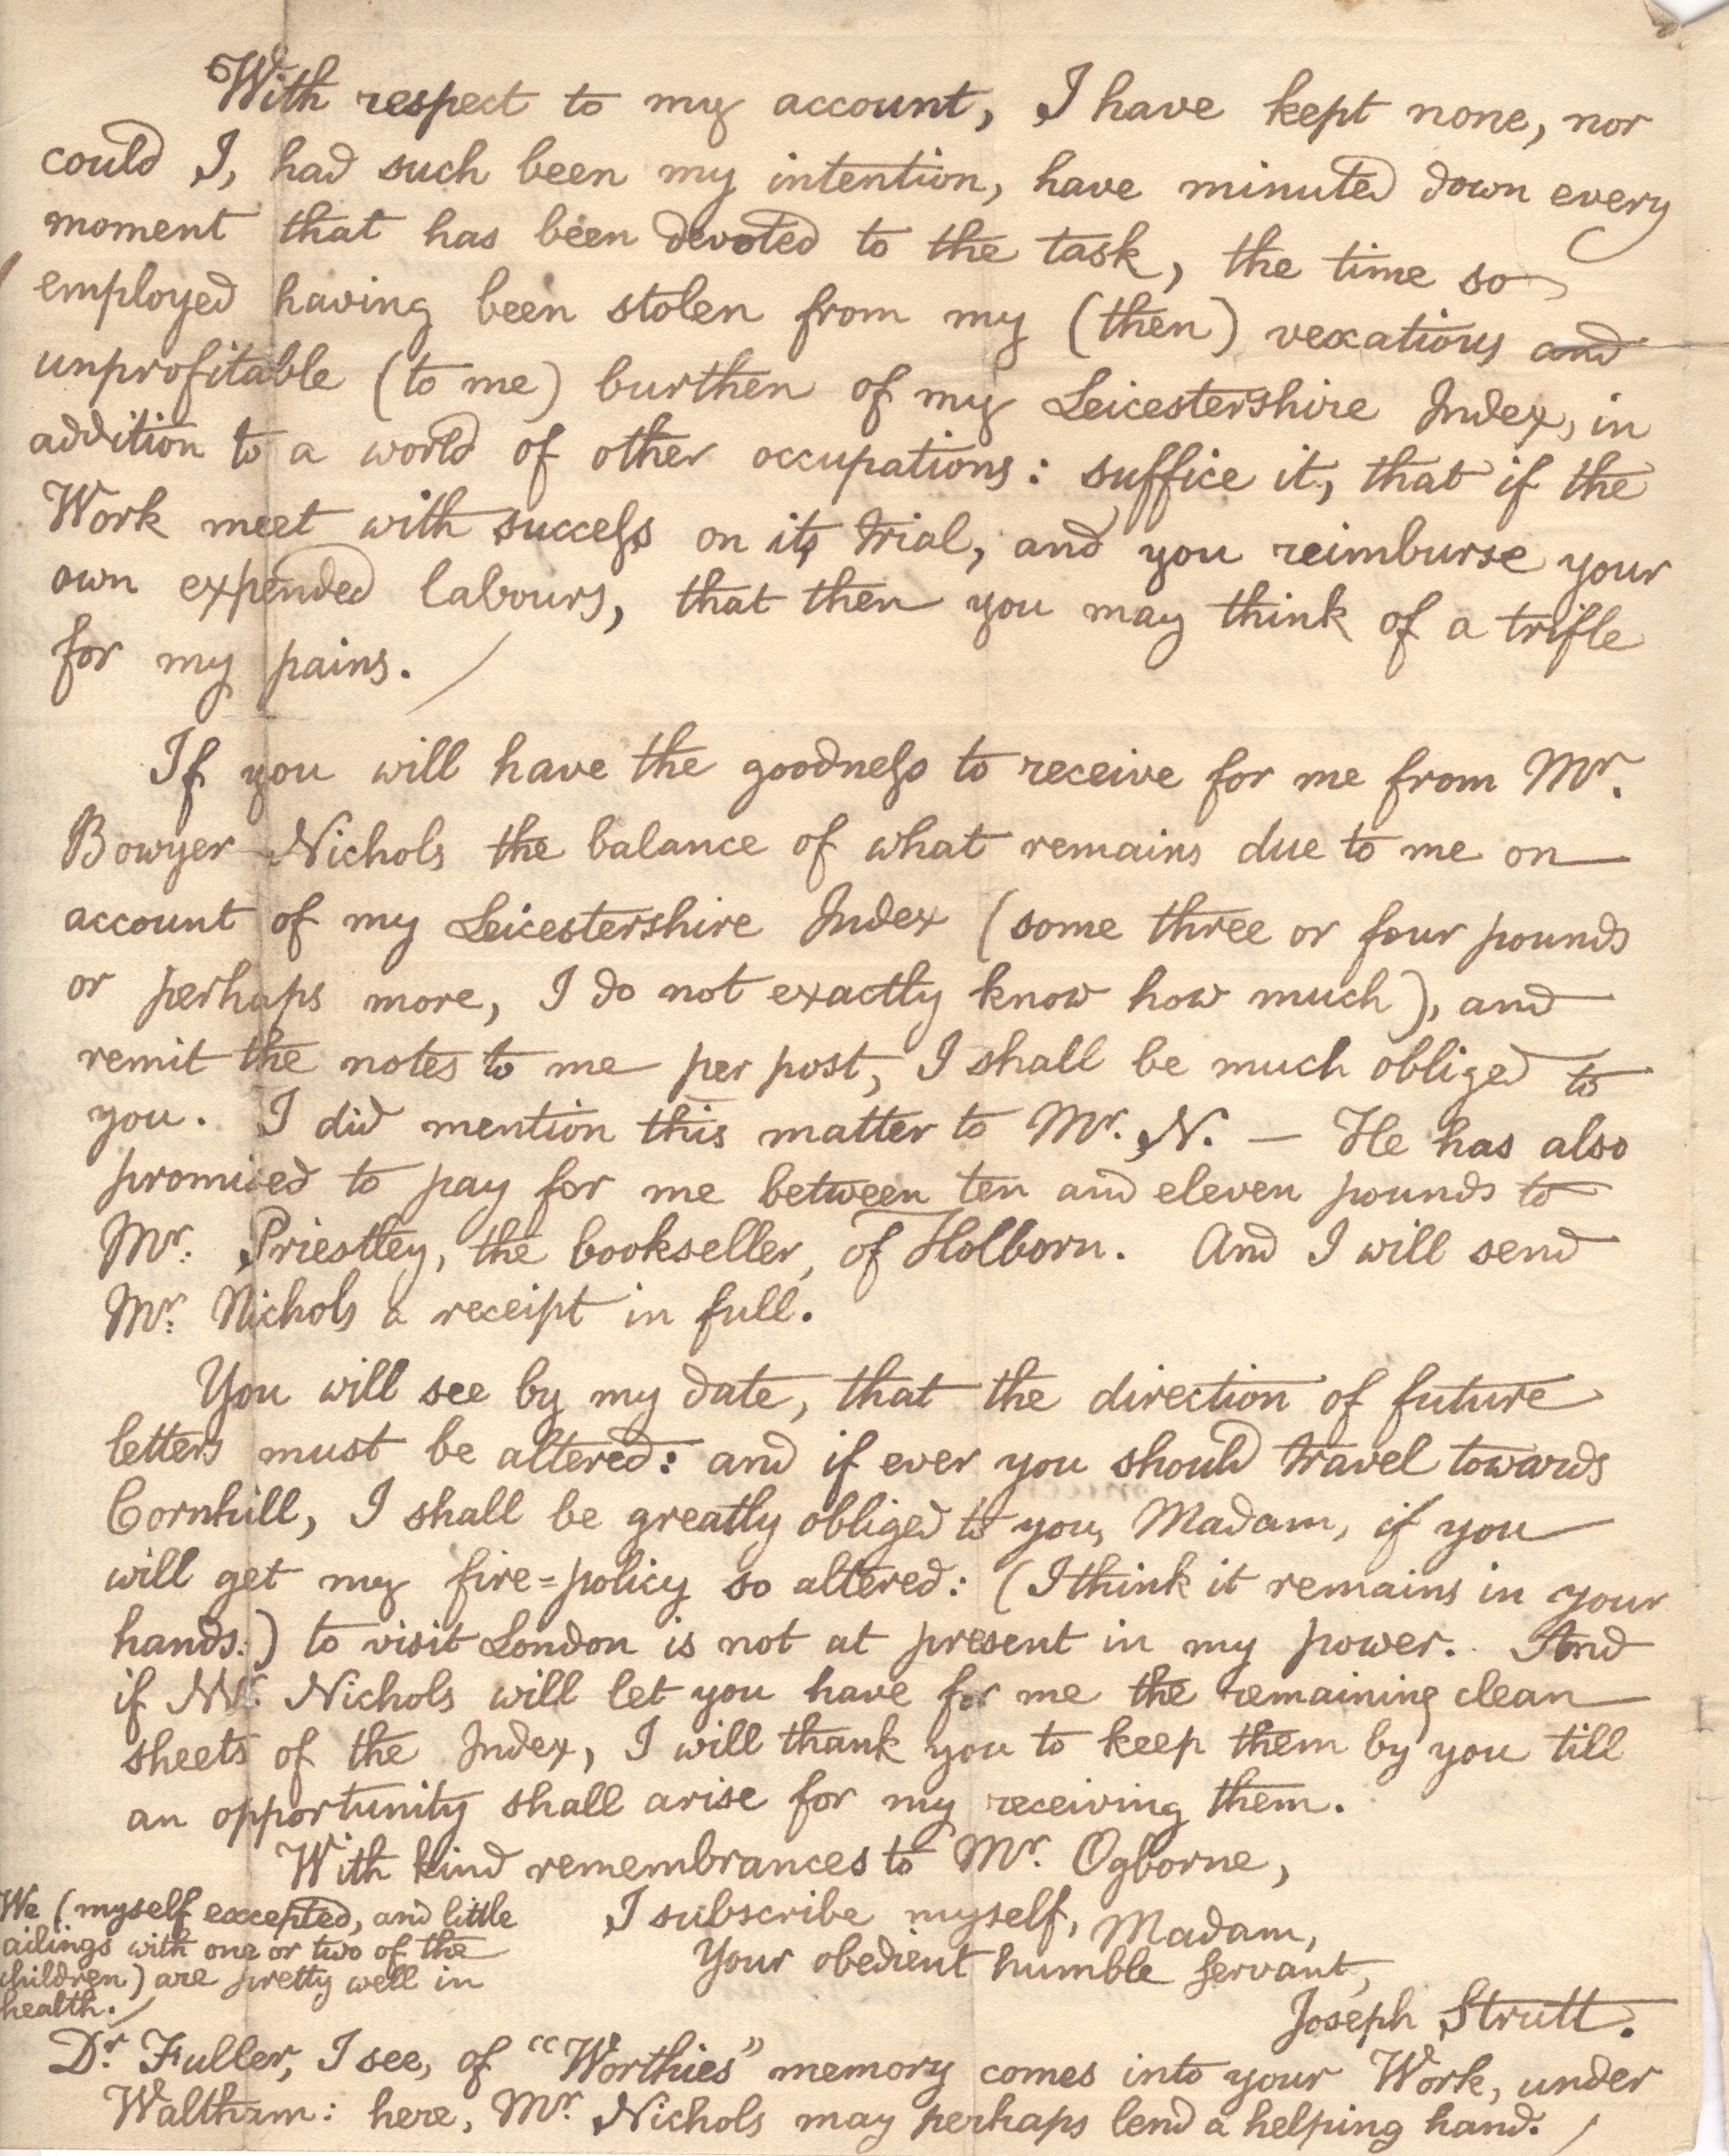 With respect to my account, I have kept none, nor
could I, had such been my intention, have minuted down every
moment that has been devoted to the task, the time so
employed having been stolen from my (then) vexatious and
unprofitable (to me) burthen of my Leicestershire Index, in
addition to a world of other occupations: suffice it, that if the
Work meet with succeſs on its trial, and you reimburse your
own expended labours, that then you may think of a trifle
for my pains. /
If you will have the goodneſs to receive for me from Mr.
Bowyer Nichols the balance of what remains due to me on
account of my Leicestershire Index (some three or four pounds
or perhaps more, I do not exactly know how much), and
remit the notes to me per post, I shall be much obliged to
you. I did mention this matter to Mr. N. — He has also
promised to pay for me between ten and eleven pounds to
Mr. Priestley, the bookseller, of Holborn. And I will send
Mr. Nichols a receipt in full.
You will see by my date, that the direction of future
letters must be altered: and if ever you should travel towards
Cornhill, I shall be greatly obliged to you, Madam, if you
will get my fire=policy so altered: (I think it remains in your
hands.) to visit London is not at present in my power. And
if Mr. Nichols will let you have for me the remaining clean
sheets of the Index, I will thank you to keep them by you till
an opportunity shall arise for my receiving them.
With kind remembrances to Mr. Ogborne,
I subscribe myself, Madam,
Your obedient humble servant,
Joseph Strutt.
We (myself excepted, and little
ailings with one or two of the
children) are pretty well in
health. /
Dr. Fuller, I see, of "Worthies" memory comes into your Work, under
Waltham: here, Mr. Nichols may perhaps lend a helping hand. /